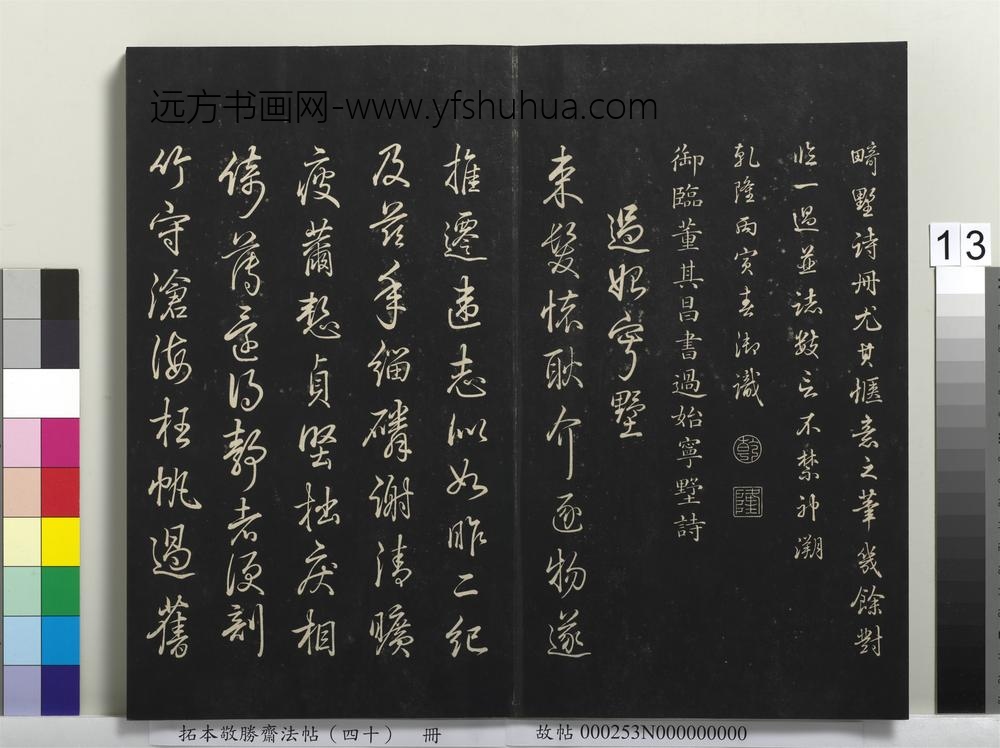 远方书画网-www.yfshuhua.com
畸墅詩冊尤其愜意之筆幾餘對
臨一過並誌數言不禁神溯
乾隆丙寅春御識
乾
隆
御臨董其昌書過始寧墅詩
過始寧墅
束髮懷耿介逐物遂
推遷違志似如昨二紀
及茲年緇磷謝清曠
疲薾慙貞堅拙疾相
倚薄還得靜者便剖
竹守滄海枉帆過舊
13
拓本敬勝齋法帖（四十） 冊
故帖 000253N000000000